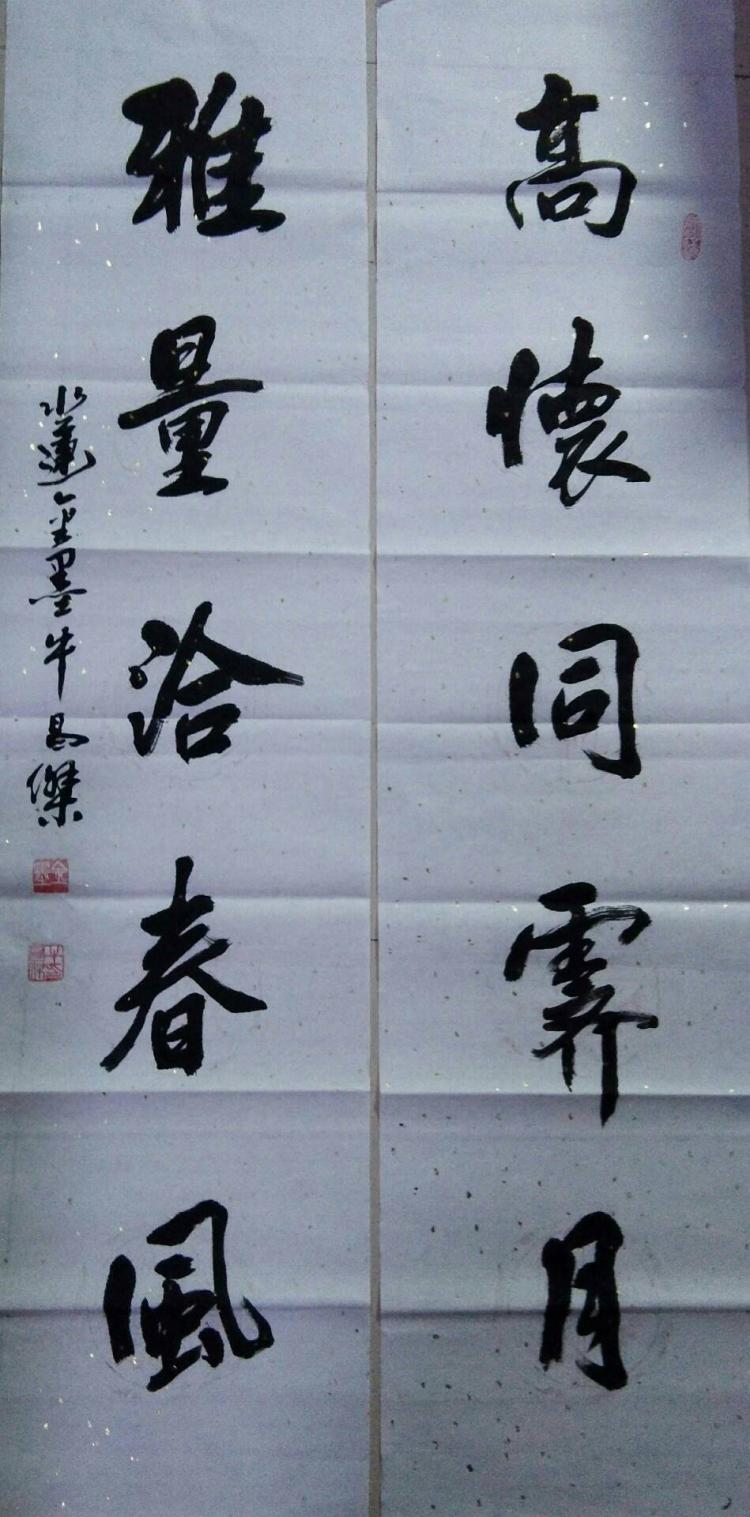 高懷同霽月
雅量洽春風
水蓮金墨牛昌傑